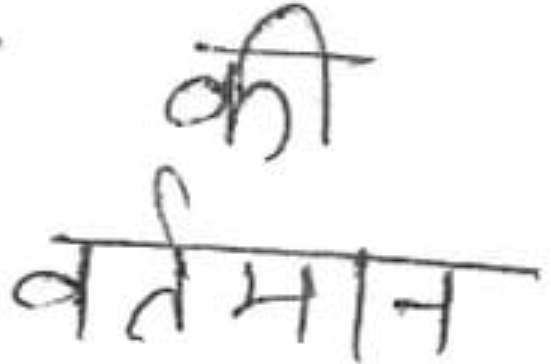 की
वर्तमान